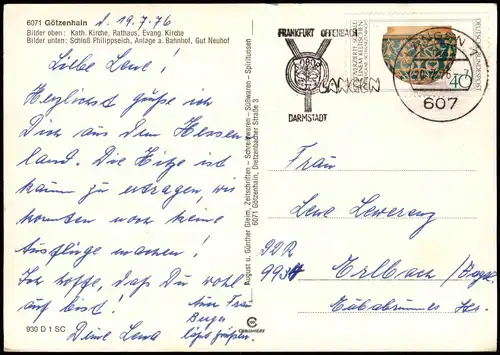 6071 Götzenhain d. 19.7.76
Bilder oben: Kath. Kirche, Rathaus, Evang. Kirche
Bilder unten: Schloß Philippseich, Anlage a. Bahnhof, Gut Neuhof
Liebe Lene!
Herzlichst grüße ich
Dich aus dem Hessen
land. Die Hitze ist
kaum zu ertragen, wir
konnten noch keine
Ausflüge machen!
Ich hoffe, daß Du wohl
auf bist!
Deine Lena
Frau
läßt grüßen.
930 D 1 SC
August u. Günther Gleim, Zeitschriften – Schreibwaren – Süßwaren – Spirituosen
6071 Götzenhain, Dietzenbacher Straße 3
CEKADE
FRANKFURT OFFENBACH
LANGEN
DARMSTADT
LANGEN 1
607
DEUTSCHE BUNDESPOST
40
Frau
Lene Leweranz
993
Erlbach